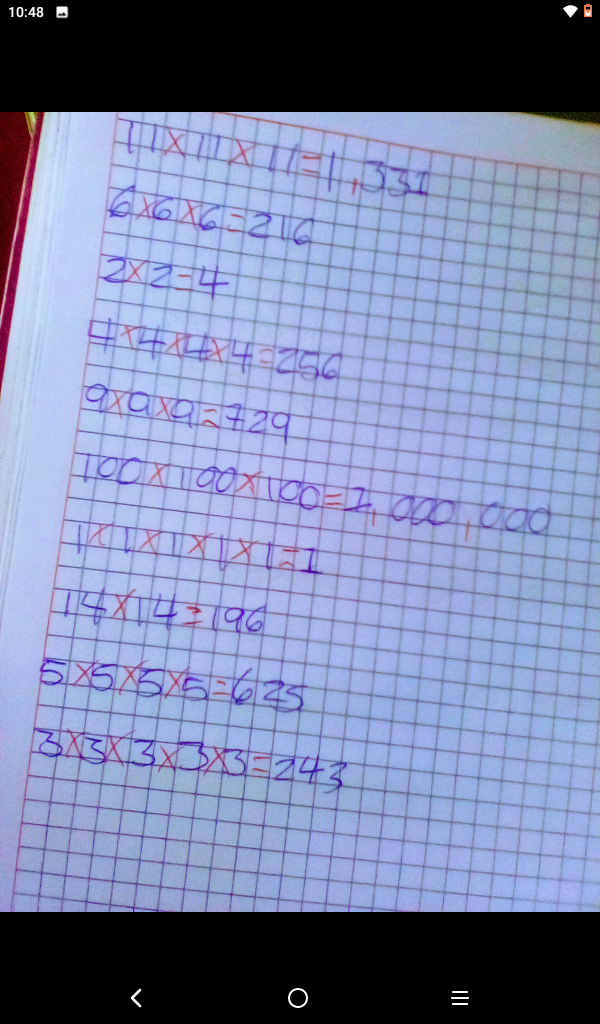 10:48
11x11x11=1,331
6x6x6=216
2x2=4
4x4x4x4=256
9x9x9=729
100x100x100=1,000,000
1x1x1x1x1=1
14x14=196
5x5x5x5=625
3x3x3x3x3=243